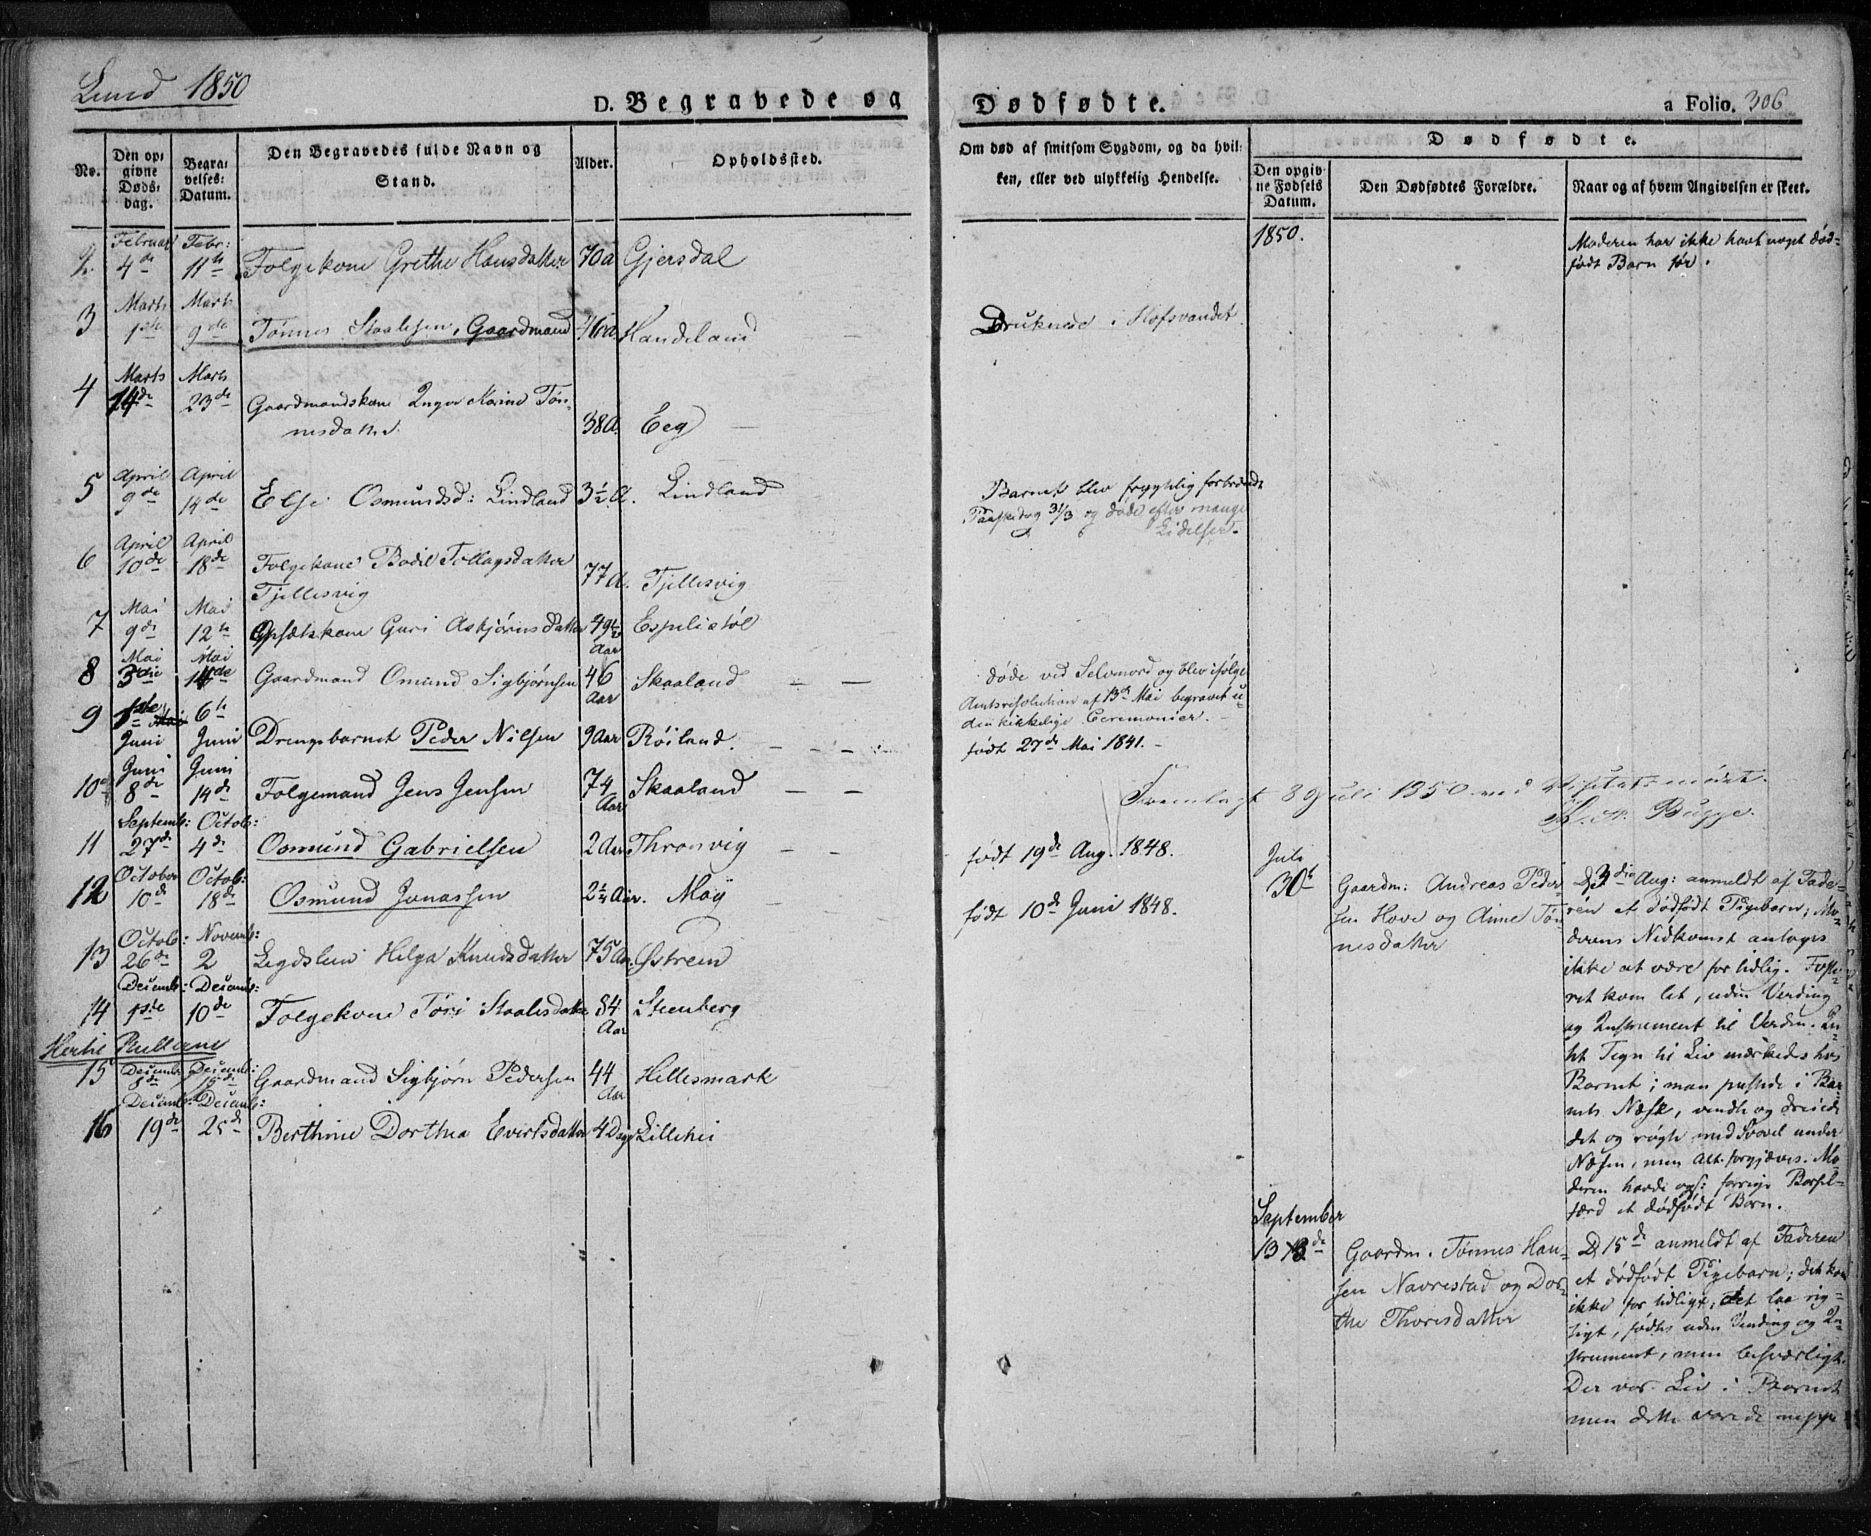 Lund 1850
D. Begravede og
No.
Den op-
givne
Døds-
dag.
Begra-
velses-
Datum.
Den Begravedes fulde Navn og
Stand.
Alder.
Opholdssted.
2. Februar 4de Febr: 11te Folgekone Grethe Hansdatter 70a Gjersdal
3 Marts 1ste Marts 9de Tønnes Staalesen, Gaardmand 46a Handeland
4 Marts 14de Marts 23de Gaardmandskone Inger Marine Tøn-
nesdatter 38a. Eeg
5 April 9de April 14de Else Osmundsd: Lindland 3½a. Lindland
6 April 10de April 18de Folgekone Bodil Tollagsdatter
Tjellesvig 77a. Tjellesvig
7 Mai 9de Mai 12te Opsætskone Guri Asbjørnsdatter 49½ Aar Espelistøl
8 Mai 3die Mai 14de Gaardmand Omund Sigbjørnsen 46 Aar Skaaland
9 1ste Juni 6te Juni Drengebarnet Peder Nilsen 9 Aar Røiland.
10 Juni 8de Juni 14de Folgemand Jens Jensen 74 Aar Skaaland
11 Septemb: 27de Octob: 4de Osmund Gabrielsen 2 Aar Thronvig
12 October 10de Octob: 18de Osmund Jonassen 2¼ Aar. Moij
13 Octob: 26de Novemb: 2 Legdslem Helga Knudsdatter 75 Aar Østrem
14 Decemb: 1ste Decemb: 10de Folgekone Tøri Staalesdatter 84 Aar Steenberg
15 Decemb: 8de Decemb: Gaardmand Sigbjørn Pedersen 44 Aar Hellesmark
16 Decemb: 19de Decemb: 25de Berthine Dorthea Evertsdatter 4 Dage Lillehei
Dødfødte.
a Folio. 306
Om død af smitsom Sygdom, og da hvil-
ken, eller ved ulykkelig Hendelse.
Dødfødte.
Den opgiv-
ne Fødsels
Datum.
Den Dødfødtes Forældre.
Naar og af hvem Angivelsen er skeet.
1850.
Moderen har ikke havt noget død-
født Barn før.
Druknede i Hofsvandet
Barnet blev frygtelig forbrændt
Paaskedag 31/3 og døde efter mange
Lidelser.
døde ved Selvmord og blev ifølge
Amtsresolution af 13de Mai begravet u-
den kirkelige Ceremonier.
født 27de Mai 1841.
Fremlagt 8 Juli 1850 ved Visitatsmødet.
Bugge.
født 19de Aug. 1848.
født 10de Juni 1848.
Juli
30te
Gaardm: Andreas Peder-
sen Hove og Anne Tøn-
nesdatter
D. 3die Aug: anmeldt af Fade-
ren et dødfødt Pigebarn; Mo-
derens Nedkomst antages
ikke at være for tidlig. Foste-
ret kom let, uden Vending
og Instrument til Verden. In-
tet Tegn til Liv mærkedes hos
Barnet; man pustede i Bar-
nets Næse, vendte og dreiede
det og røgte med Svovel under
Næsen, men Alt forgjæves. Mo-
deren havde ogs: forrige Barsel-
færd et dødfødt Barn.
September
13de
Gaardm. Tønnes Han-
sen Navrestad og Dor-
the Thoresdatter
D. 15de anmeldt af Faderen
et dødfødt Pigebarn; det kom
ikke for tidligt; det laa rig-
tigt, fødtes uden Vending og In-
strument, men besværligt.
Der var Liv i Barnet
men dette varede neppe